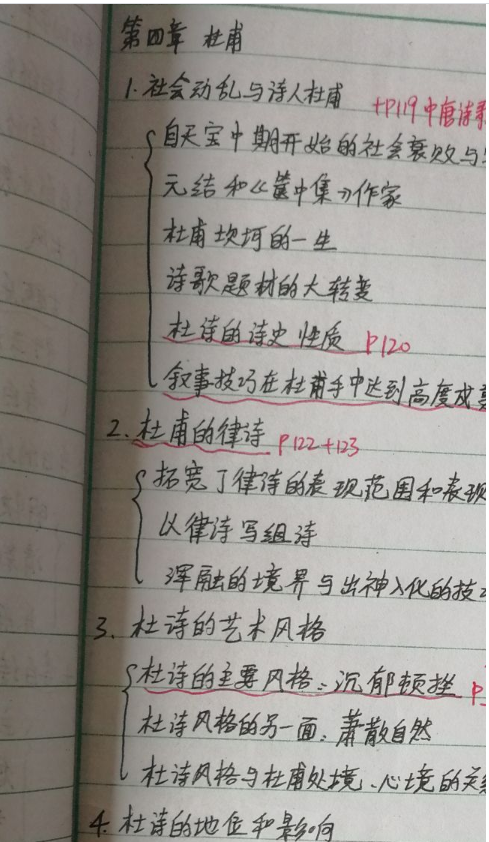 第四章 杜甫
1. 社会动乱与诗人杜甫 +P119 中唐诗
自天宝中期开始的社会衰败与
元结和《箧中集》作家
杜甫坎坷的一生
诗歌题材的大转变
杜诗的诗史性质 P120
叙事技巧在杜甫手中达到高度成
2. 杜甫的律诗 P122+123
拓宽了律诗的表现范围和表现
以律诗写组诗
浑融的境界与出神入化的技
3. 杜诗的艺术风格
杜诗的主要风格：沉郁顿挫 P
杜诗风格的另一面：萧散自然
杜诗风格与杜甫处境、心境的关
4. 杜诗的地位和影响